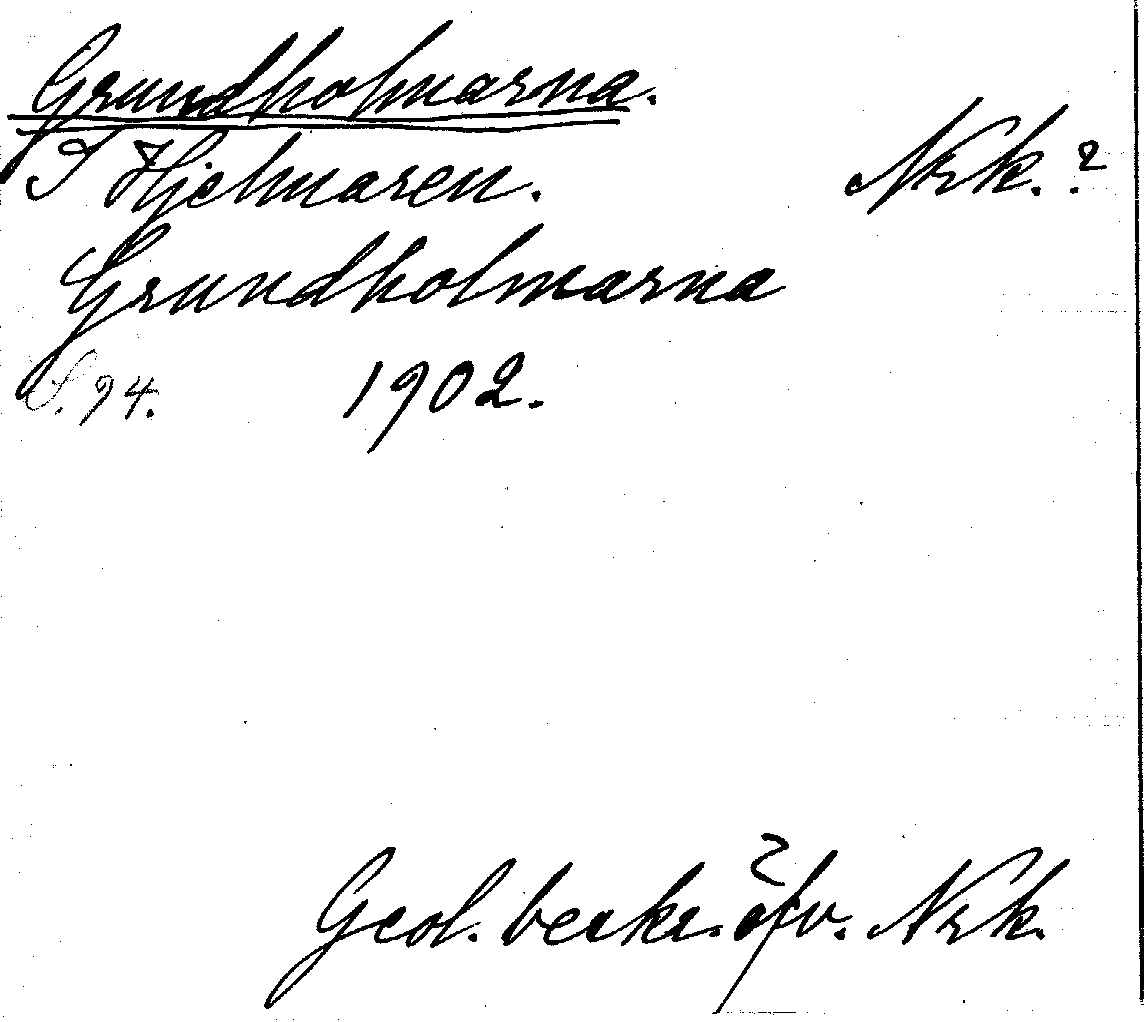 Grundholmarna.
I Hjelmaren. Nrk.?
Grundholmarna
S. 94. 1902.
Geol. beskr. öfv. Nrk.